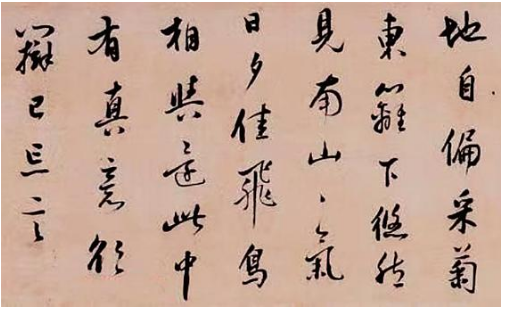 地自偏采菊
東籬下悠然
見南山〻氣
日夕佳飛鳥
相與還此中
有真意欲
辨已忘言